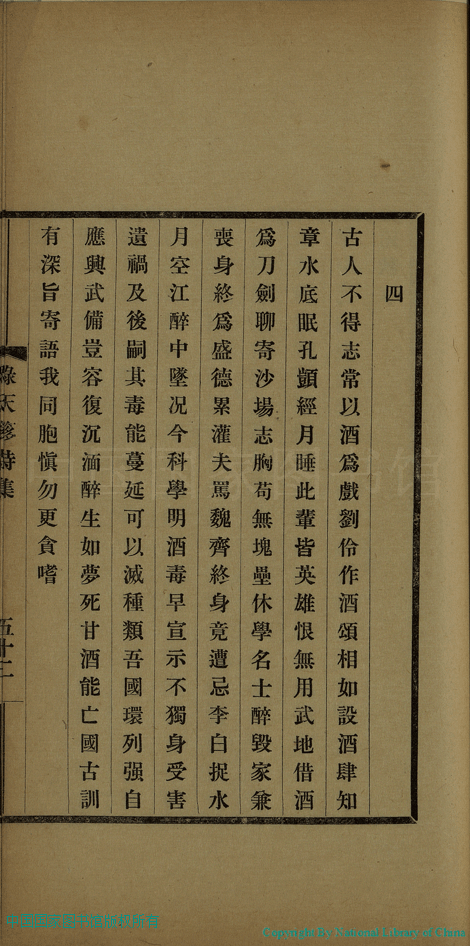 四
古人不得志常以酒爲戲劉伶作酒頌相如設酒肆知
章水底眠孔顗經月睡此輩皆英雄恨無用武地借酒
爲刀劍聊寄沙場志胸苟無塊壘休學名士醉毀家兼
喪身終爲盛德累灌夫罵魏齊終身竟遭忌李白捉水
月空江醉中墜况今科學明酒毒早宣示不獨身受害
遺禍及後嗣其毒能蔓延可以滅種類吾國環列强自
應興武備豈容復沉湎醉生如夢死甘酒能亡國古訓
有深旨寄語我同胞愼勿更貪嗜
天
詩集
五十二
Copyright By National Library of China